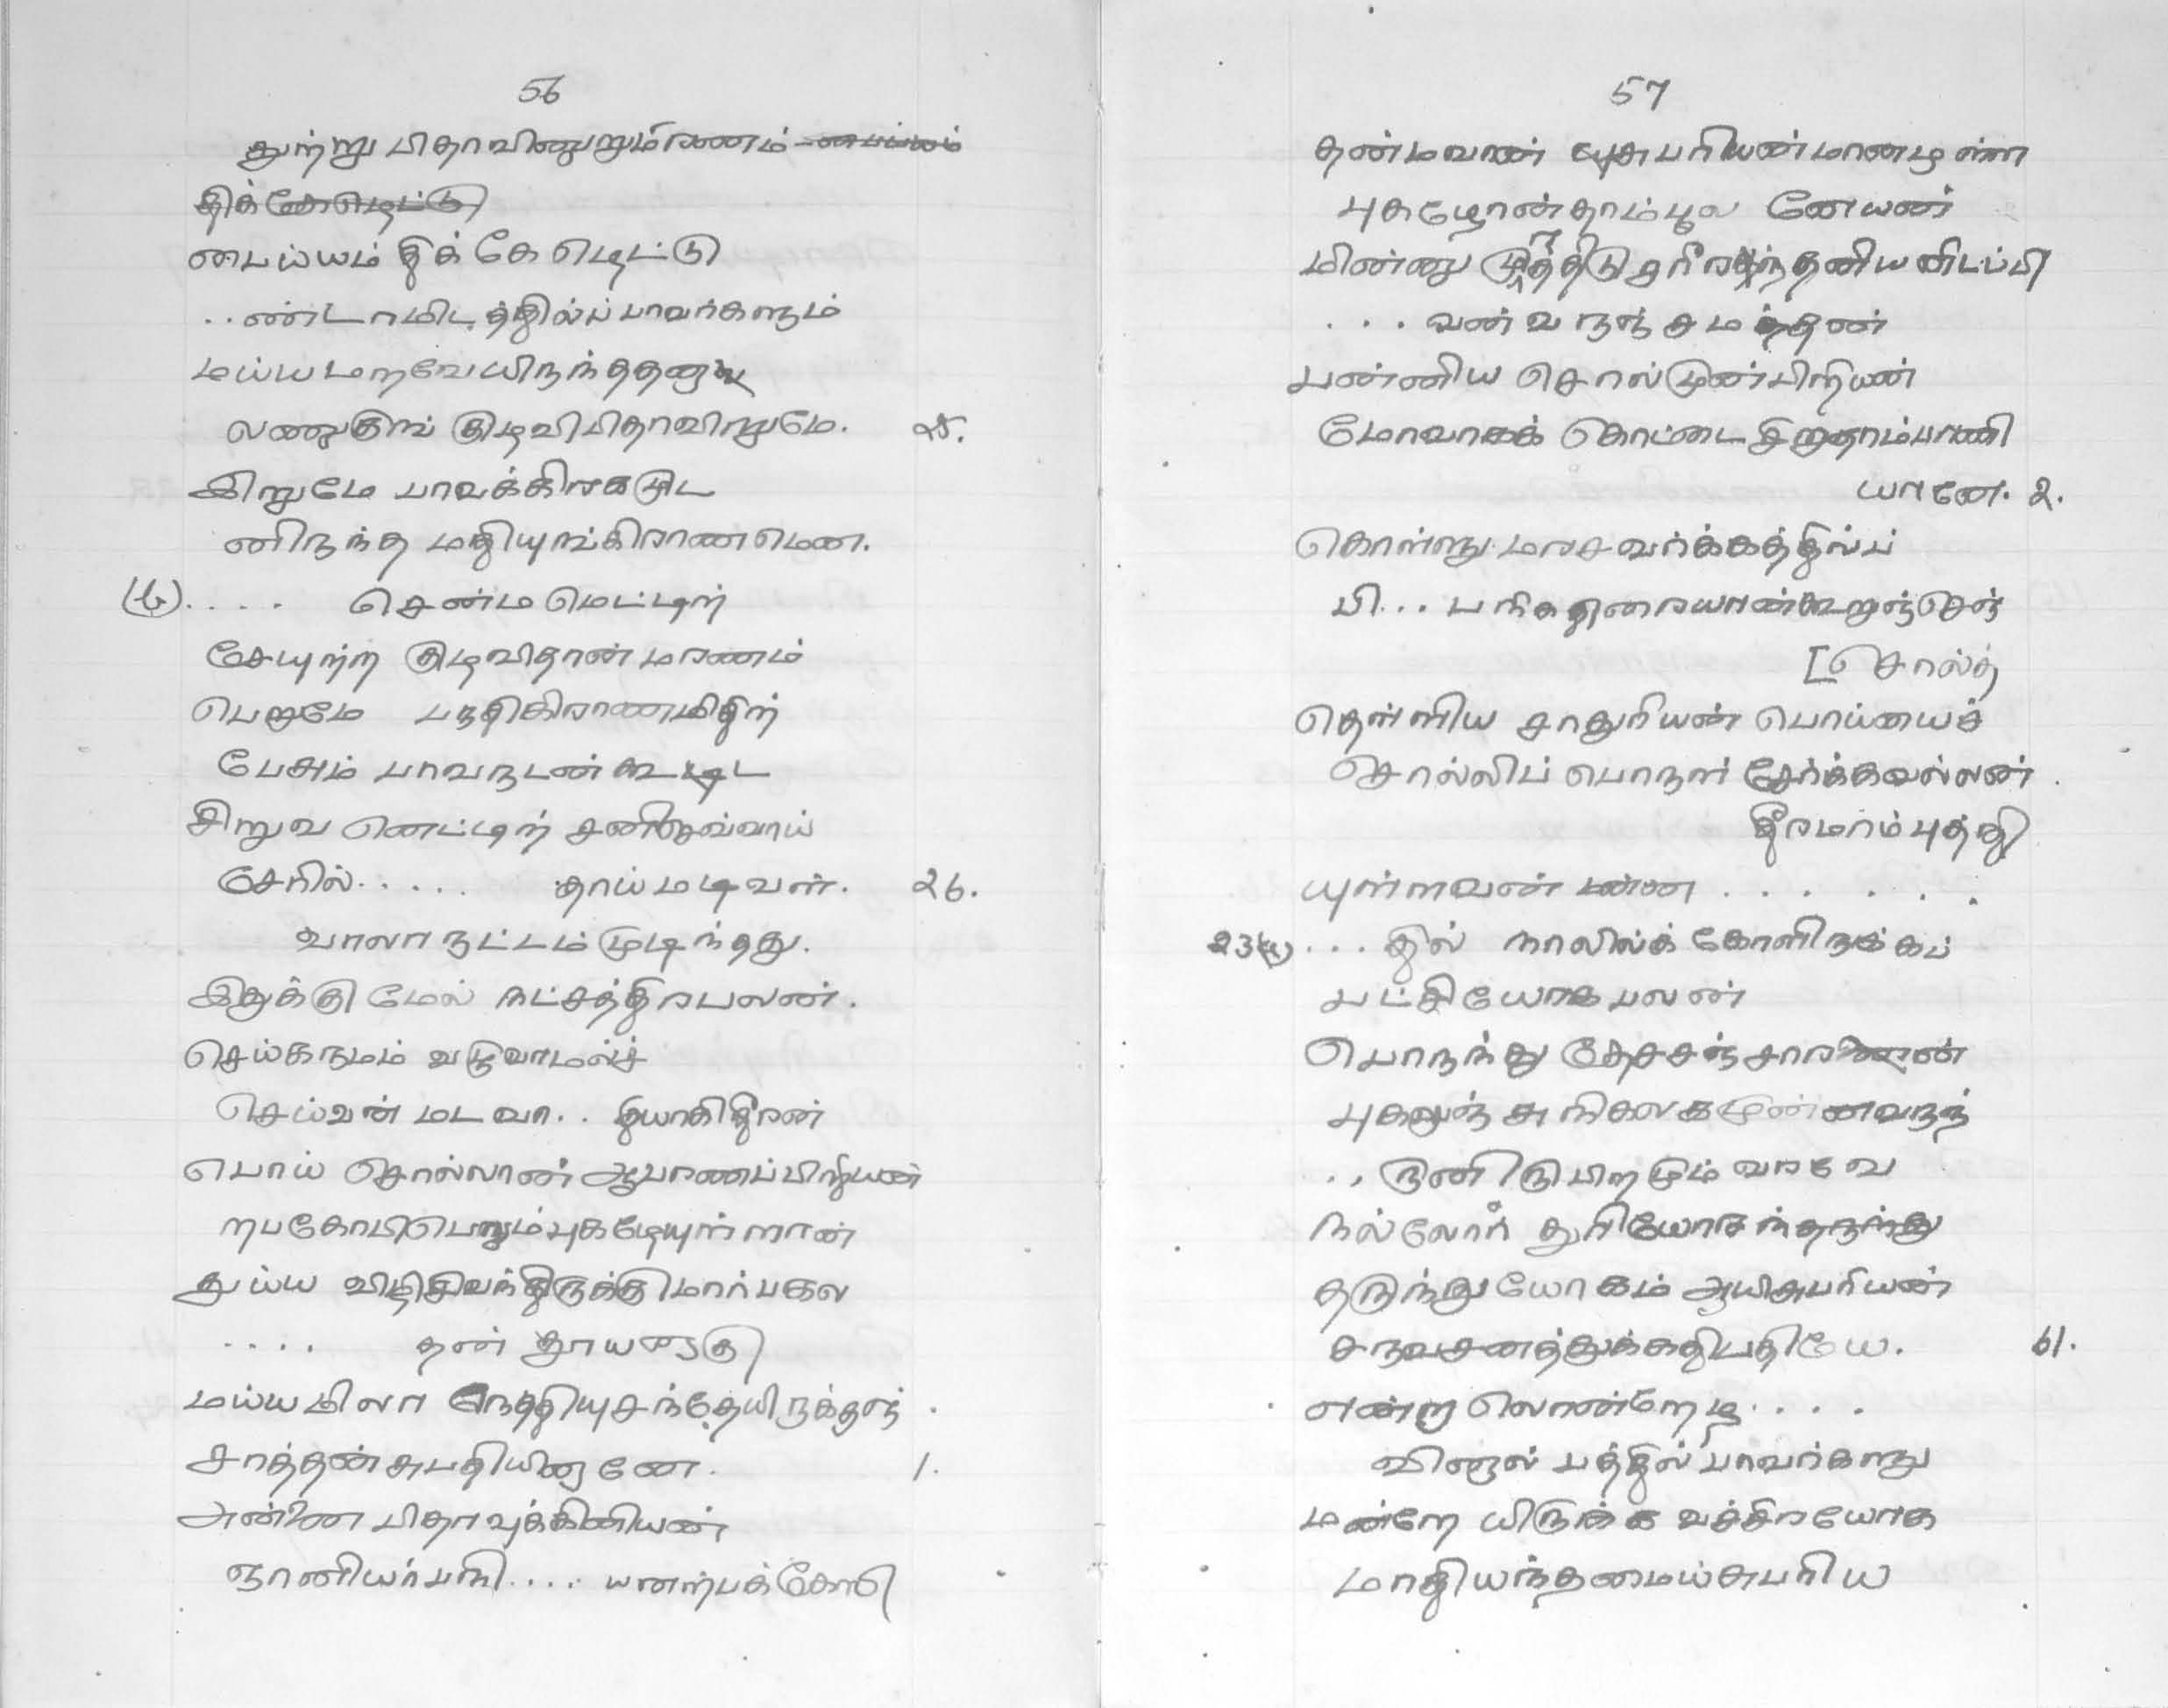 56
துற்று பிதாவினுறும்ரணம்
பைய்யம் திக் கே ழெட்டு
..ண்டாமிடத்தில்ப் பாவர்களும்
மய்யமறவேயிருந்ததனால்
லணுகுங் குழவி பிதாவிறுமே. 25.
இறுமே பாவக்கிரகமுட
னிருந்த மதியுங்கிராணமென.
(b).... சென்ம மெட்டிற்
சேயுற்ற குழவிதான் மரணம்
பெறுமே பருதிகிராணமிதிற்
பேசும் பாவருடன் கூடிட
சிறுவ னெட்டிற் சனிசெவ்வாய்
சேரில்..... தாய் மடிவள். 26.
வாலாநட்டம் முடிந்தது.
இதுக்கு மேல் நட்சத்திரபலன்.
செய்கருமம் வழுவாமல்ச்
செய்வன் மடவா.. தியாகிதீரன்
பொய் சொல்லான் ஆபரணப்பிறியன்
றபகோபிபெறும்புகழேயுள்ளான்
துய்ய விழிசிவந்திருக்குமார்பகல
.... தன் தாய
மய்யமிலா நெத்தியுசந்தேயிருக்குஞ்
சாத்தன் சுபதியினானே. 1.
அன்னை பிதாவுக்கினியன்
ஞானியர்பரி.... யனற்பக்கோபி
57
தன்மவான் சுபரியன்மானமுள்ள
புகழோன்தாம்பூல னேயன்
மின்னு முத்திடு தனியனிடப்பி
... வன் வருஞ் சமத்தன்
பன்னிய சொல்முன்பிறியன்
மோவாகக் கொட்டை சிறுதாம்பாணி
யானே. 2.
கொள்ளு மரசவர்க்கத்தில்ப்
பி... பரிகதுரையான்பெறுஞ்செந்
[சொல்த்
தெள்ளிய சாதுரியன் பொய்யைச்
சொல்லிப் பொருள் சேர்க்கவல்லன்
தீரமாம்புத்தி
யுள்ளவன் மன்ன ......
23(a) ... தில் நாலில்க் கோளிருக்கப்
பட்சியோக பலன்
பொருந்து தேசசஞ்சாரன்
புகலுஞ் சுரிகலகமுன்னவருந்
.. துனிடு பிறமும் வரவே
நல்லோர் துரியோகந்தருந்து
தடுந்து யோகம் ஆயிசுபரியன்
சருவசனத்துக்கதிபதியே. 61.
என்று லொன்றேழ....
வினால் பத்தில் பாவர்களு
மன்றே யிருக்க வச்சிரயோக
மாதியந்தமைய்சுபரிய